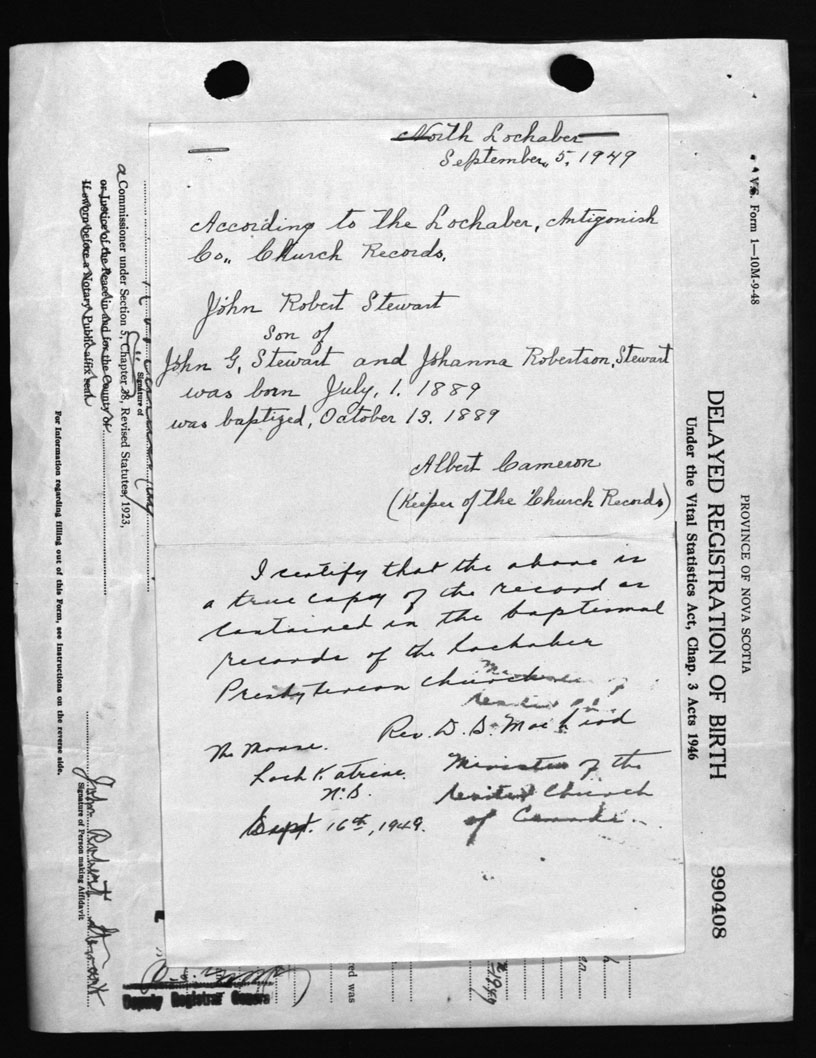 North Lochaber
September, 5, 1949
According to the Lochaber, Antigonish
Co., Church Records,
John Robert Stewart
Son of
John G, Stewart and Johanna Robertson, Stewart
was born July, 1. 1889
was baptized, October 13. 1889
Albert Cameron
(Keeper of the Church Records)
I certify that the above is
a true copy of the record as
contained in the baptismal
records of the Lochaber
Presbyterian Church
Rev. D. S. MacLeod
The Manse.
Minister of the
Loch Katrine
United Church
N.S.
of Canada.
Sept. 16th, 1949.
V.S. Form 1—10M-9-48
PROVINCE OF NOVA SCOTIA
DELAYED REGISTRATION OF BIRTH
990408
Under the Vital Statistics Act, Chap. 3 Acts 1946
Signature of
a Commissioner under Section 5, Chapter 38, Revised Statutes, 1923,
or Justice of the Peace in and for the County of
If sworn before a Notary Public affix seal
For Information regarding filling out of this Form, see Instructions on the reverse side.
John Robert Stewart
Signature of Person making Affidavit
Deputy Registrar General
red was
1949